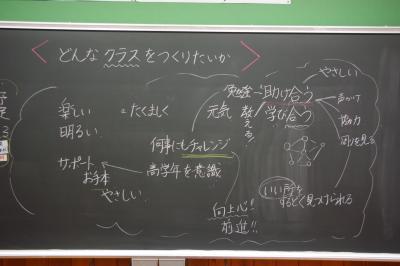 どんなクラスをつくりたいか
勉強
助け合う
やさしい
元気
教える
学び合う
声かけ
協力
周りを見る
楽しい
たくましく
明るい
何事にもチャレンジ
サポート
お手本
高学年を意識
やさしい
いい所を
するどく見つけられる
向上心!
前進!!